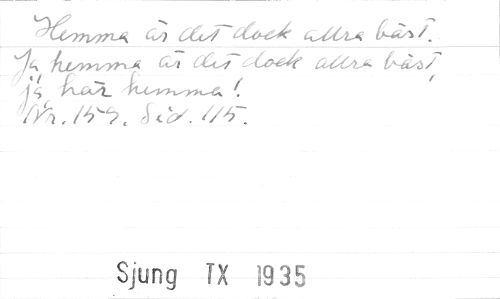 Hemma är det dock allra bäst.
Ja hemma är det dock allra bäst,
ja, här hemma!
Nr. 159. Sid. 115.
Sjung TX 1935